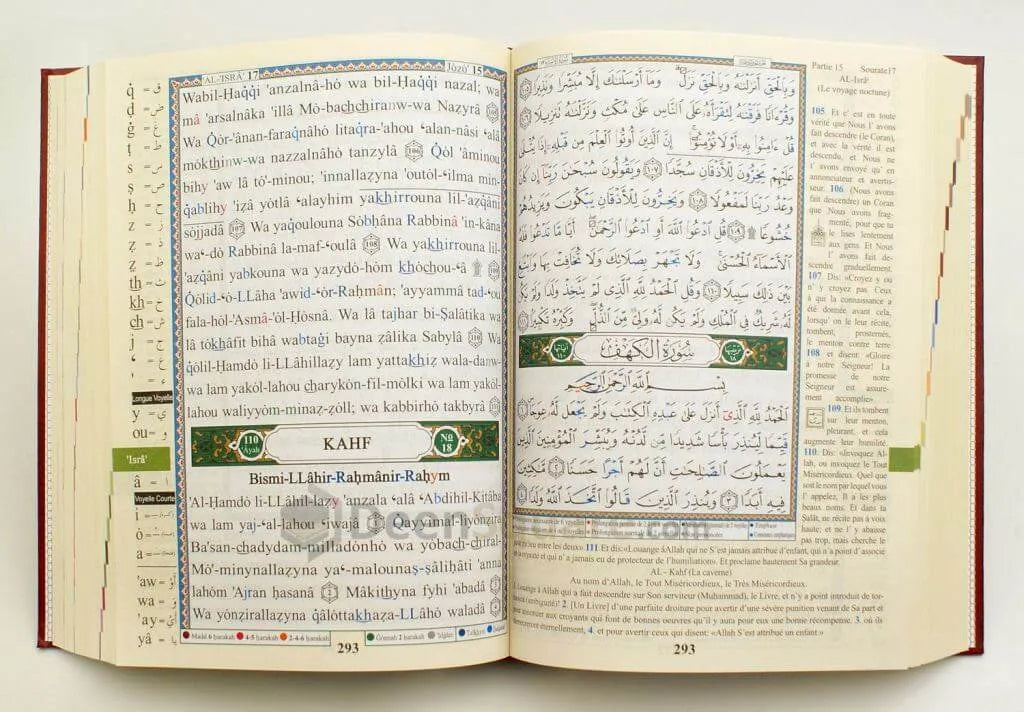 'AL-'ISRÂ' 17
Jòzò' 15
Wabil-Ḥaqqi 'anzalnâ-hó wa bil-Ḥaqqi nazal; wa
mâ 'arsalnâka 'illâ Mò-bachchiranw-wa Nazyrâ 105
Wa Qòr-'ânan-faraqnâhó litaqra-'ahou 'alan-nâsi 'alâ
mòkthinw-wa nazzalnâhó tanzylâ 106 Qòl 'âminou
bihy 'aw lâ tò'-minou; 'innallaẓyna 'outòl-'ilma min-
qablihy 'iẓâ yótlâ 'alayhim yakhirrouna lil-'aẓqâni
sójjadâ 107 Wa yaqoulouna Sòbḥâna Rabbinâ 'in-kâna
wa'-dò Rabbinâ la-maf-'oulâ 108 Wa yakhirrouna lil-
'aẓqâni yabkouna wa yazydò-hóm khóchou-'â
Qòlid-'ò-LLâha 'awid-'òr-Raḥmân; 'ayyammâ tad-'ou
fala-hól-'Asmâ-'òl-Ḥósnâ. Wa lâ tajhar bi-Ṣalâtika wa
lâ tòkhâfit bihâ wabtaği bayna ẓâlika Sabylâ 110 Wa
qòlil-Ḥamdò li-LLâhillaẓy lam yattakhiẓ wala-danw-
wa lam yakól-lahou charykón-fil-mòlki wa lam yakól-
lahou waliyyòm-minaẓ-ẓóll; wa kabbirhó takbyrâ
110 'Âyah
KAHF
No 18
Bismi-LLâhir-Raḥmânir-Raḥym
'Al-Ḥamdò li-LLâhil-laẓy 'anzala 'alâ 'Abdihil-Kitâba
wa lam yaj-'al-lahou 'iwajâ 1 Qayyimal-liyónẓira
Ba'san-chadydam-milladónhó wa yóbach-chiral-
Mò'-minynallaẓyna ya'-malounaṣ-ṣâliḥâti 'anna
lahóm 'Ajran ḥasanâ 2 Mâkithyna fyhi 'abadâ 3
Wa yónẓirallaẓyna qâlóttakhaẓa-LLâhó waladâ 4
Madd 6 ḥarakah 4-5 ḥarakah 2-4-6 ḥarakah Gònnah 2 ḥarakah 'Idğâm Tafkhym
293
q̇ = ق
ḍ = ض
ğ = غ
ṭ = ط
s = س
ṣ = ص
ḥ = ح
z = ز
ẓ = ذ
ẓ = ظ
th = ث
kh = خ
ch = ش
j = ج
' = ع
' = ء
Longue Voyelle
y = ي
ou = و
'Isrâ'
â = ا
Voyelle Courte
i =
ó =
a =
'aw = أَوْ
wa = وَ
'ay = أَيْ
yâ = يا
وَبِالْحَقِّ أَنزَلْنَاهُ وَبِالْحَقِّ نَزَلَ وَمَا أَرْسَلْنَاكَ إِلَّا مُبَشِّرًا وَنَذِيرًا ١٠٥
وَقُرْءَانًا فَرَقْنَاهُ لِتَقْرَأَهُ عَلَى النَّاسِ عَلَى مُكْثٍ وَنَزَّلْنَاهُ تَنزِيلًا ١٠٦
قُلْ ءَامِنُوا بِهِ أَوْ لَا تُؤْمِنُوا إِنَّ الَّذِينَ أُوتُوا الْعِلْمَ مِن قَبْلِهِ إِذَا يُتْلَى
عَلَيْهِمْ يَخِرُّونَ لِلْأَذْقَانِ سُجَّدًا ١٠٧ وَيَقُولُونَ سُبْحَانَ رَبِّنَا إِن كَانَ
وَعْدُ رَبِّنَا لَمَفْعُولًا ١٠٨ وَيَخِرُّونَ لِلْأَذْقَانِ يَبْكُونَ وَيَزِيدُهُمْ
خُشُوعًا ١٠٩ قُلِ ادْعُوا اللَّهَ أَوِ ادْعُوا الرَّحْمَنَ أَيًّا مَّا تَدْعُوا فَلَهُ
الْأَسْمَاءُ الْحُسْنَى وَلَا تَجْهَرْ بِصَلَاتِكَ وَلَا تُخَافِتْ بِهَا وَابْتَغِ
بَيْنَ ذَلِكَ سَبِيلًا ١١٠ وَقُلِ الْحَمْدُ لِلَّهِ الَّذِي لَمْ يَتَّخِذْ وَلَدًا وَلَمْ يَكُن
لَّهُ شَرِيكٌ فِي الْمُلْكِ وَلَمْ يَكُن لَّهُ وَلِيٌّ مِّنَ الذُّلِّ وَكَبِّرْهُ تَكْبِيرًا ١١١
آياتها ١١٠
سُورَةُ الْكَهْفِ
ترتيبها ١٨
بِسْمِ اللَّهِ الرَّحْمَنِ الرَّحِيمِ
الْحَمْدُ لِلَّهِ الَّذِي أَنزَلَ عَلَى عَبْدِهِ الْكِتَابَ وَلَمْ يَجْعَل لَّهُ عِوَجًا ١
قَيِّمًا لِّيُنذِرَ بَأْسًا شَدِيدًا مِّن لَّدُنْهُ وَيُبَشِّرَ الْمُؤْمِنِينَ الَّذِينَ
يَعْمَلُونَ الصَّالِحَاتِ أَنَّ لَهُمْ أَجْرًا حَسَنًا ٢ مَّاكِثِينَ
فِيهِ أَبَدًا ٣ وَيُنذِرَ الَّذِينَ قَالُوا اتَّخَذَ اللَّهُ وَلَدًا ٤
Partie 15 Sourate17
AL-Isrâ'
(Le voyage nocturne)
105. Et c' est en toute
vérité que Nous l' avons
fait descendre (le Coran),
et avec la vérité il est
descendu, et Nous ne
l' avons envoyé qu' en
annonciateur et avertis-
seur. 106. (Nous avons
fait descendre) un Coran
que Nous avons frag-
menté, pour que tu
le lises lentement
aux gens. Et Nous
l' avons fait des-
cendre graduellement.
107. Dis: «Croyez y ou
n' y croyez pas. Ceux
à qui la connaissance a
été donnée avant cela,
lorsqu' on le leur récite,
tombent, prosternés,
le menton contre terre
108. et disent: «Gloire
à notre Seigneur! La
promesse de notre
Seigneur est assuré-
ment accomplie».
109. Et ils tombent
sur leur menton,
pleurant, et cela
augmente leur humilité.
110. Dis: «Invoquez Al-
lah, ou invoquez le Tout
Miséricordieux. Quel que
soit le nom par lequel vous
l' appelez, Il a les plus
beaux noms. Et dans ta
Salât, ne récite pas à voix
haute; et ne l' y abaisse
pas trop, mais cherche le
juste milieu entre les deux». 111. Et dis: «Louange à Allah qui ne S'est jamais attribué d'enfant, qui n'a point d'associé
en la royauté et qui n' a jamais eu de protecteur de l'humiliation». Et proclame hautement Sa grandeur.
AL - Kahf (La caverne)
Au nom d'Allah, le Tout Miséricordieux, le Très Miséricordieux.
1. Louange à Allah qui a fait descendre sur Son serviteur (Muhammad), le Livre, et n'y a point introduit de tor-
tuosité (ambiguïté)! 2. [Un Livre] d'une parfaite droiture pour avertir d'une sévère punition venant de Sa part et
pour annoncer aux croyants qui font de bonnes oeuvres qu'il y aura pour eux une bonne récompense. 3. où ils
demeureront éternellement, 4. et pour avertir ceux qui disent: «Allah S'est attribué un enfant.»
293